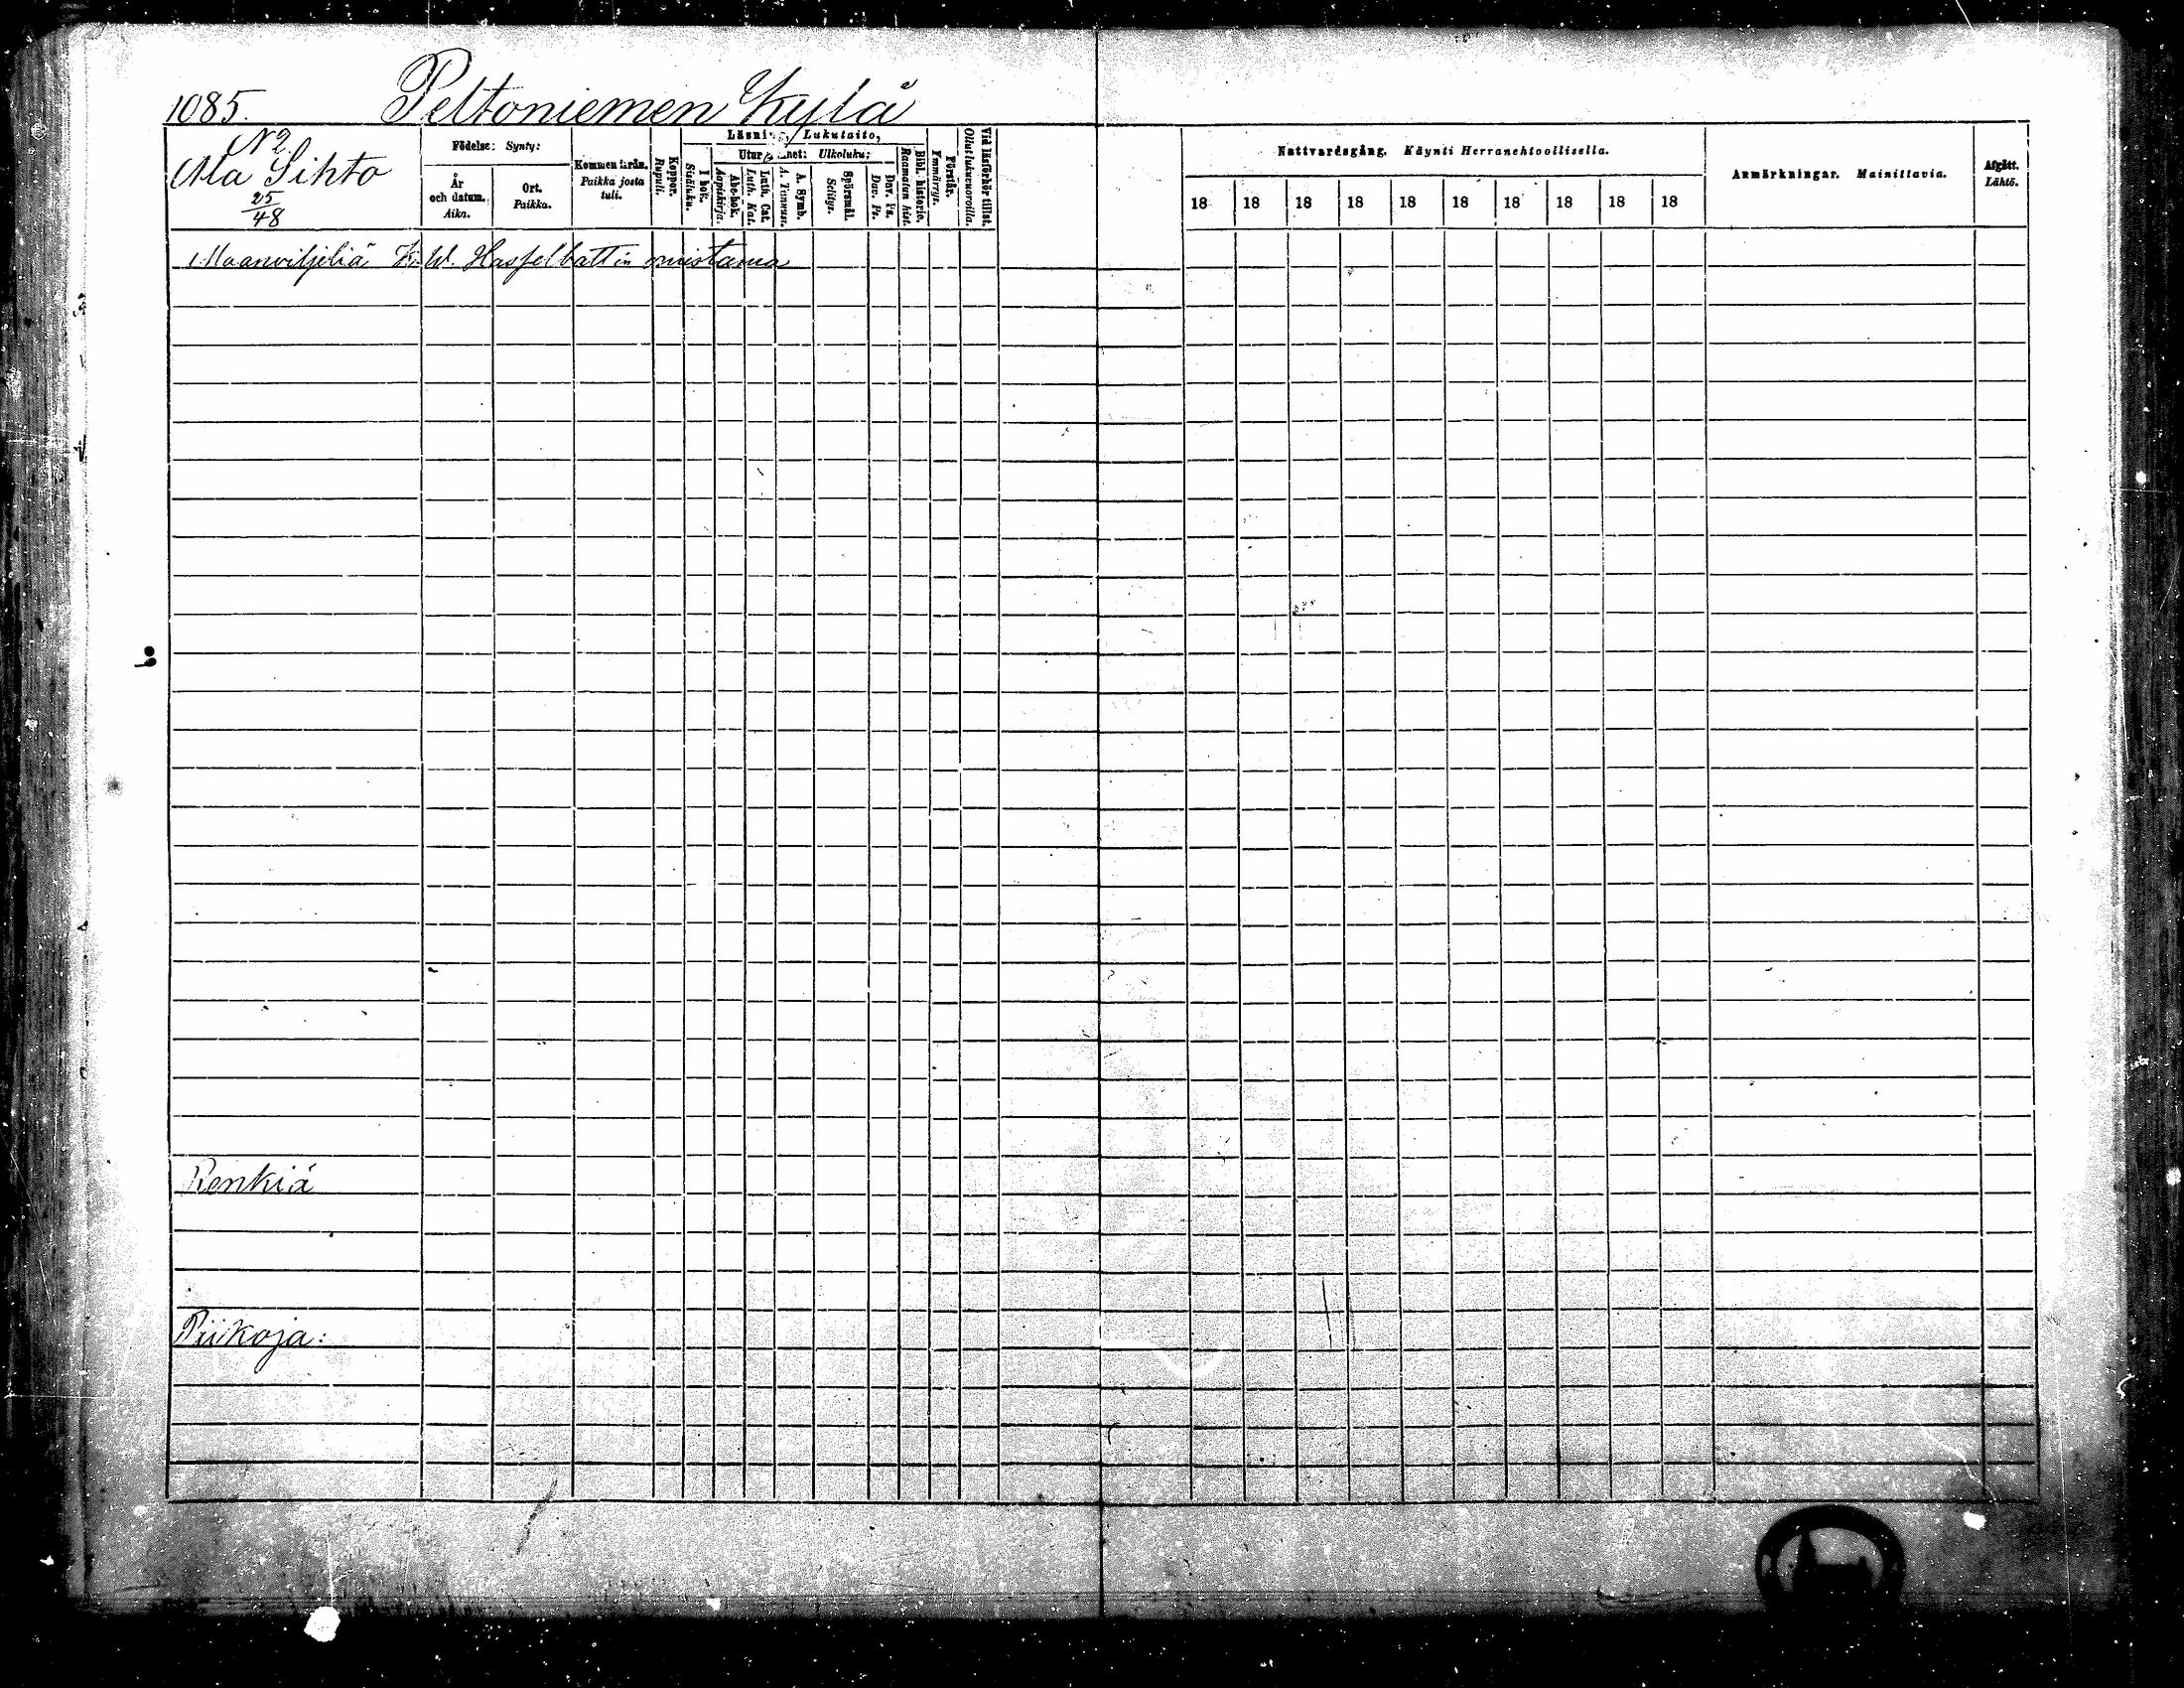 1085. Peltoniemen Kylä
N2.
Ala Sihto
25/48
Födelse: Synty:
År och datum. Aika.
Ort. Paikka.
Kommen ifrån. Paikka josta tuli.
Koppor. Rupuli.
Läsning, Lukutaito,
I bok. Sisäluku.
Utur minnet: Ulkoluku:
Abc-bok. Aapiskirja.
Luth. Cat. Luth. Kat.
A. Symb. A. Tunnust.
Spörsmål. Selitys.
Dav. Ps. Dav. Ps.
Bibl. historie. Raamatun hist.
Förstår. Ymmärrys.
Vid läsförhör tillst. Ollut lukuvuoroilla.
Nattvardsgång. Käynti Herranehtoollisella.
18 18 18 18 18 18 18 18 18 18
Anmärkningar. Mainittavia.
Afgått. Lähtö.
Maanviljeliä K. W. Hasselbattin omistama
Renkiä
Piikoja: